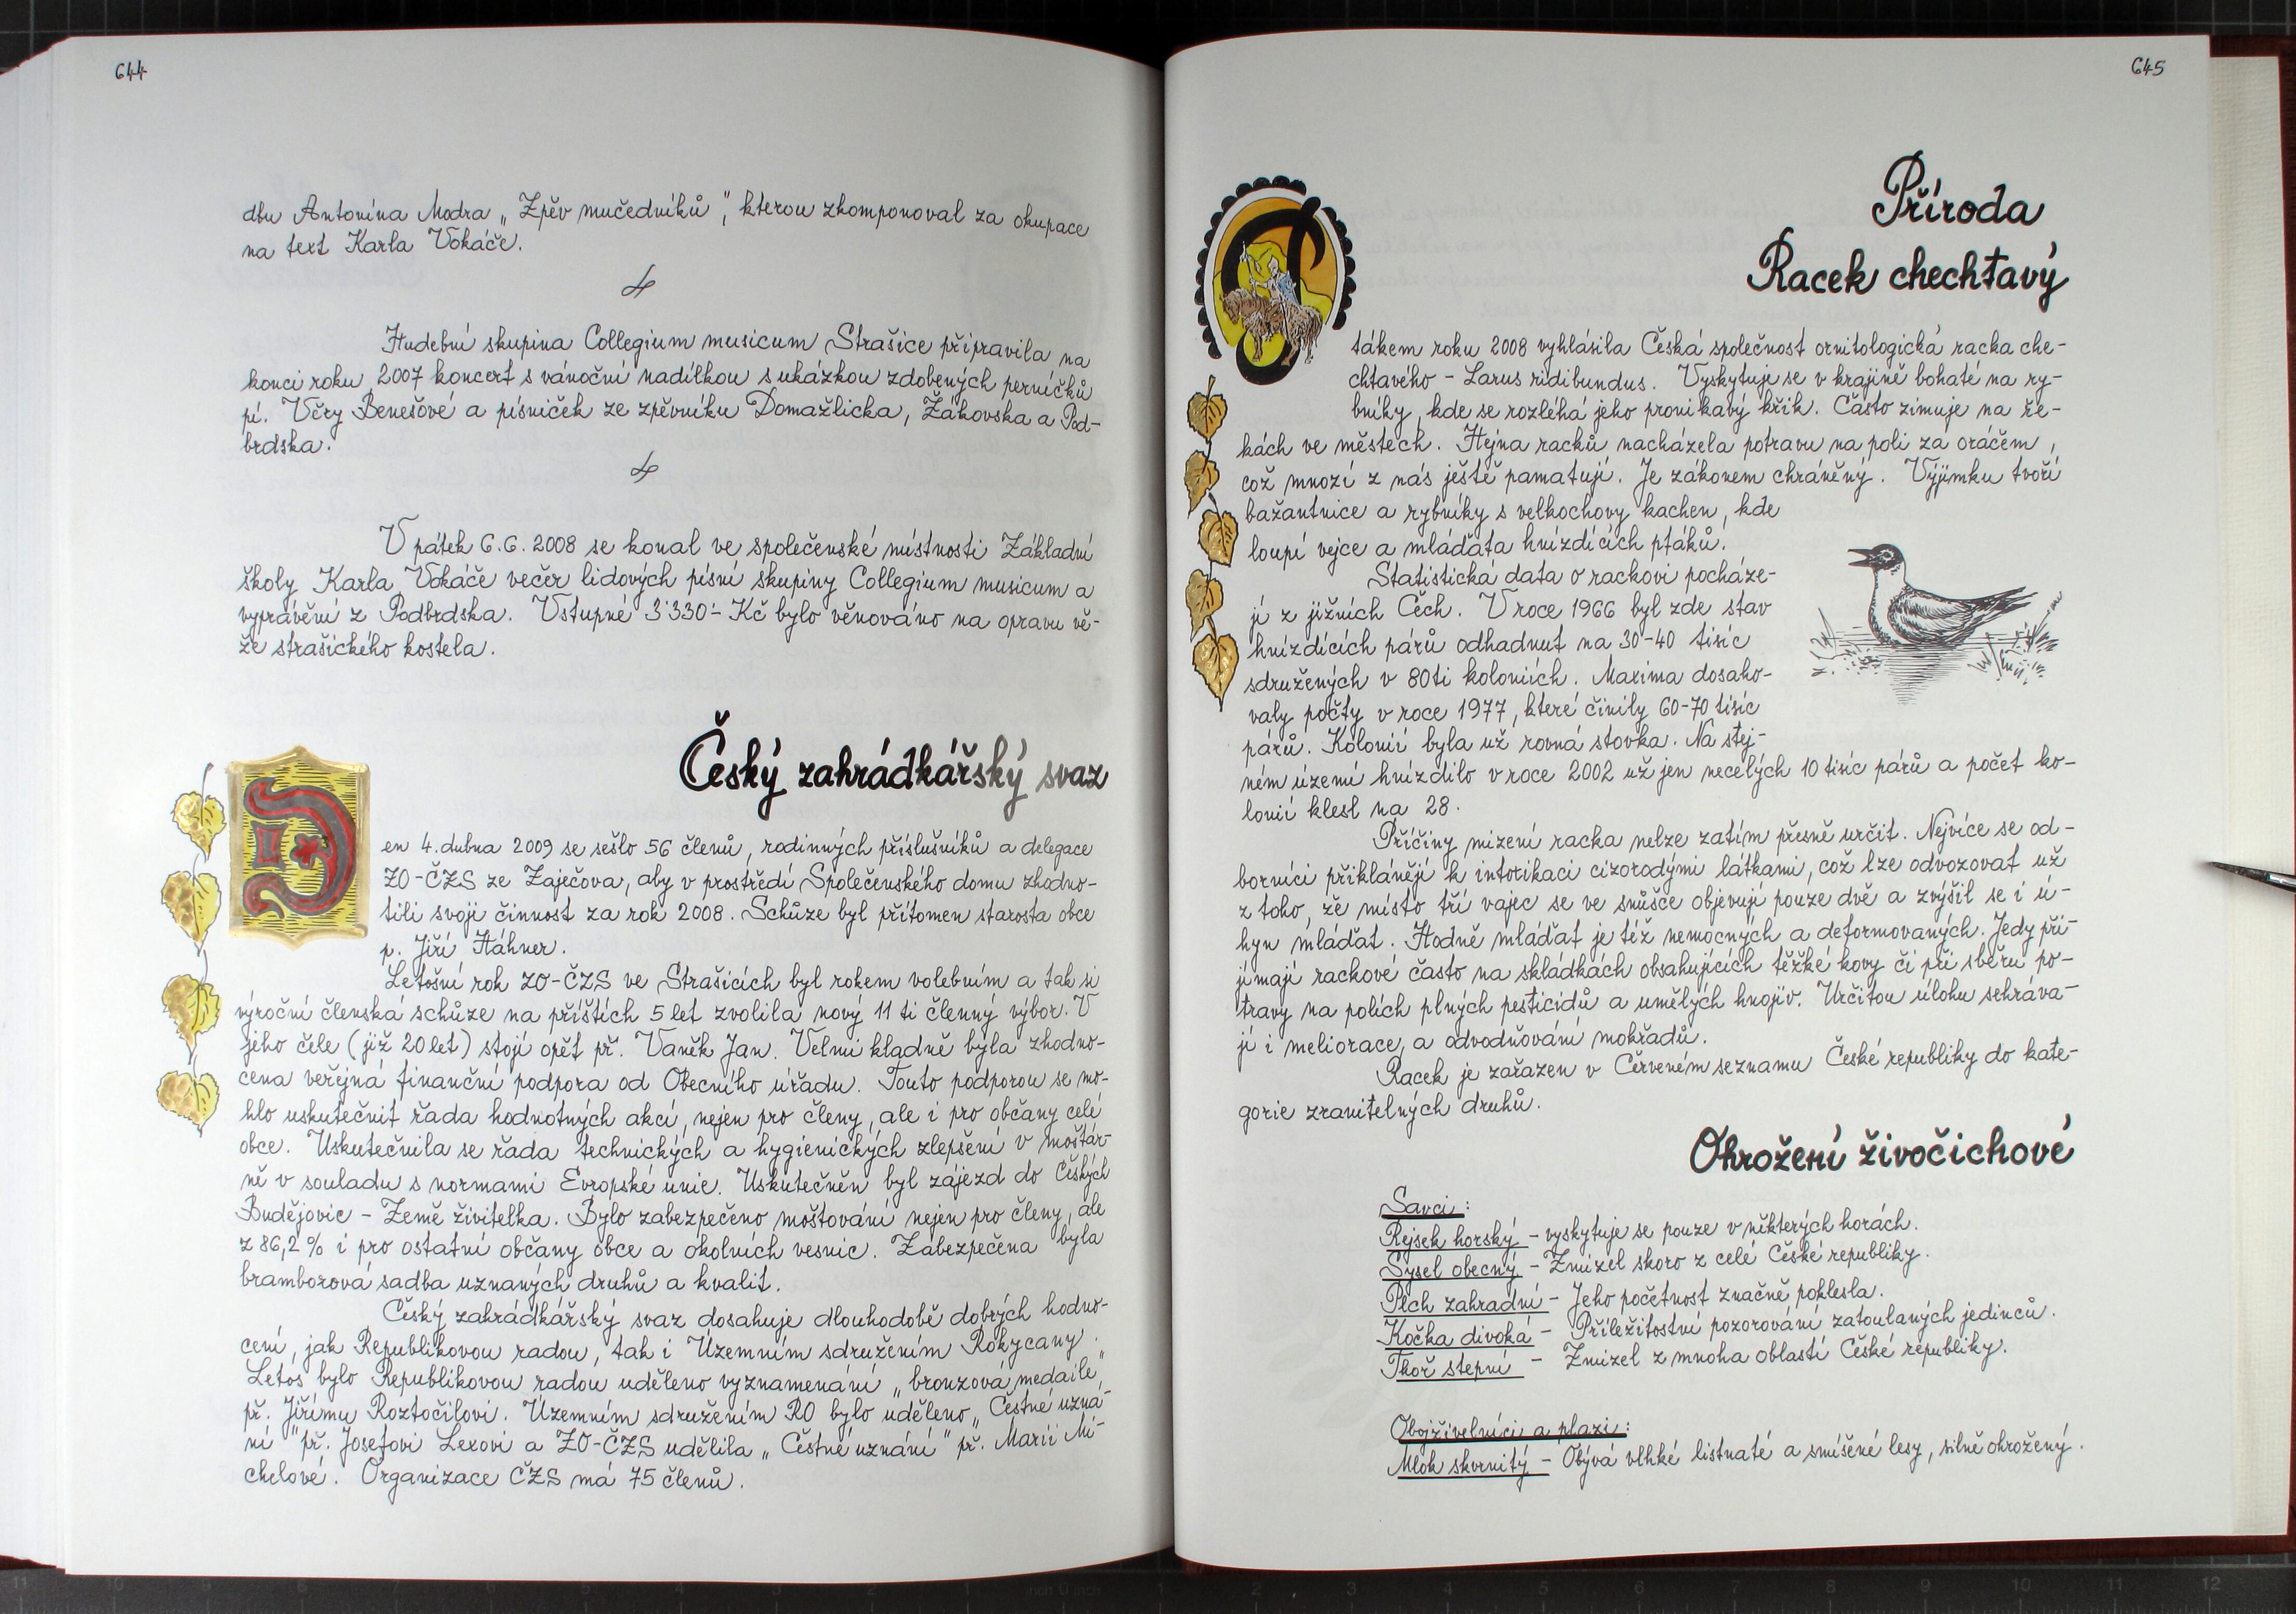 644
dbu Antonína Modra „Zpěv mučedníků", kterou zkomponoval za okupace
na text Karla Vokáče.
Hudební skupina Collegium musicum Strašice připravila na
konci roku 2007 koncert s vánoční nadílkou s ukázkou zdobených perníčků
pí. Věry Benešové a písniček ze zpěvníku Domažlicka, Žákovska a Pod-
brdska.
V pátek 6.6.2008 se konal ve společenské místnosti Základní
školy Karla Vokáče večer lidových písní skupiny Collegium musicum a
vyprávění z Podbrdska. Vstupné 3'330'- Kč bylo věnováno na opravu vě-
že strašického kostela.
Český zahrádkářský svaz
Den 4. dubna 2009 se sešlo 56 členů, rodinných příslušníků a delegace
ZO-ČZS ze Zaječova, aby v prostředí Společenského domu zhodno-
tili svoji činnost za rok 2008. Schůze byl přítomen starosta obce
p. Jiří Hahner.
Letošní rok ZO-ČZS ve Strašicích byl rokem volebním a tak si
výroční členská schůze na příštích 5 let zvolila nový 11 ti členný výbor. V
jeho čele (již 20 let) stojí opět př. Vaněk Jan. Velmi kladně byla zhodno-
cena veřejná finanční podpora od Obecního úřadu. Touto podporou se mo-
hlo uskutečnit řada hodnotných akcí, nejen pro členy, ale i pro občany celé
obce. Uskutečnila se řada technických a hygienických zlepšení v moštár-
ně v souladu s normami Evropské unie. Uskutečněn byl zájezd do Českých
Budějovic - Země živitelka. Bylo zabezpečeno moštování nejen pro členy, ale
z 86,2 % i pro ostatní občany obce a okolních vesnic. Zabezpečena byla
bramborová sadba uznaných druhů a kvalit.
Český zahrádkářský svaz dosahuje dlouhodobě dobrých hodno-
cení, jak Republikovou radou, tak i Územním sdružením Rokycany.
Letos bylo Republikovou radou uděleno vyznamenání „bronzová medaile"
př. Jiřímu Roztočilovi. Územním sdružením RO bylo uděleno „Čestné uzná-
ní" př. Josefovi Lexovi a ZO-ČZS udělila „Čestné uznání" př. Marii Mi-
chelové. Organizace ČZS má 75 členů.
645
Příroda
Racek chechtavý
Ptákem roku 2008 vyhlásila Česká společnost ornitologická racka che-
chtavého - Larus ridibundus. Vyskytuje se v krajině bohaté na ry-
bníky, kde se rozléhá jeho pronikavý křik. Často zimuje na ře-
kách ve městech. Hejna racků nacházela potravu na poli za oráčem,
což mnozí z nás ještě pamatují. Je zákonem chráněný. Výjimku tvoří
bažantnice a rybníky s velkochovy kachen, kde
loupí vejce a mláďata hnízdících ptáků.
Statistická data o rackovi pocháze-
jí z jižních Čech. V roce 1966 byl zde stav
hnízdících párů odhadnut na 30-40 tisíc
sdružených v 80ti koloniích. Maxima dosaho-
valy počty v roce 1977, které činily 60-70 tisíc
párů. Kolonií byla už rovná stovka. Na stej-
ném území hnízdilo v roce 2002 už jen necelých 10 tisíc párů a počet ko-
lonií klesl na 28.
Příčiny mizení racka nelze zatím přesně určit. Nejvíce se od-
borníci přiklánějí k intoxikaci cizorodými látkami, což lze odvozovat už
z toho, že místo tří vajec se ve snůšce objevují pouze dvě a zvýšil se i ú-
hyn mláďat. Hodně mláďat je též nemocných a deformovaných. Jedy při-
jímají rackové často na skládkách obsahujících těžké kovy či při sběru po-
travy na polích plných pesticidů a umělých hnojiv. Určitou úlohu sehráva-
jí i meliorace, a odvodňování mokřadů.
Racek je zařazen v Červeném seznamu České republiky do kate-
gorie zranitelných druhů.
Ohrožení živočichové
Savci:
Rejsek horský - vyskytuje se pouze v některých horách.
Sysel obecný - Zmizel skoro z celé České republiky.
Plch zahradní - Jeho početnost značně poklesla.
Kočka divoká - Příležitostní pozorování zatoulaných jedinců.
Tkoř stepní - Zmizel z mnoha oblastí České republiky.
Obojživelníci a plazi:
Mlok skvrnitý - Obývá vlhké listnaté a smíšené lesy, silně ohrožený.